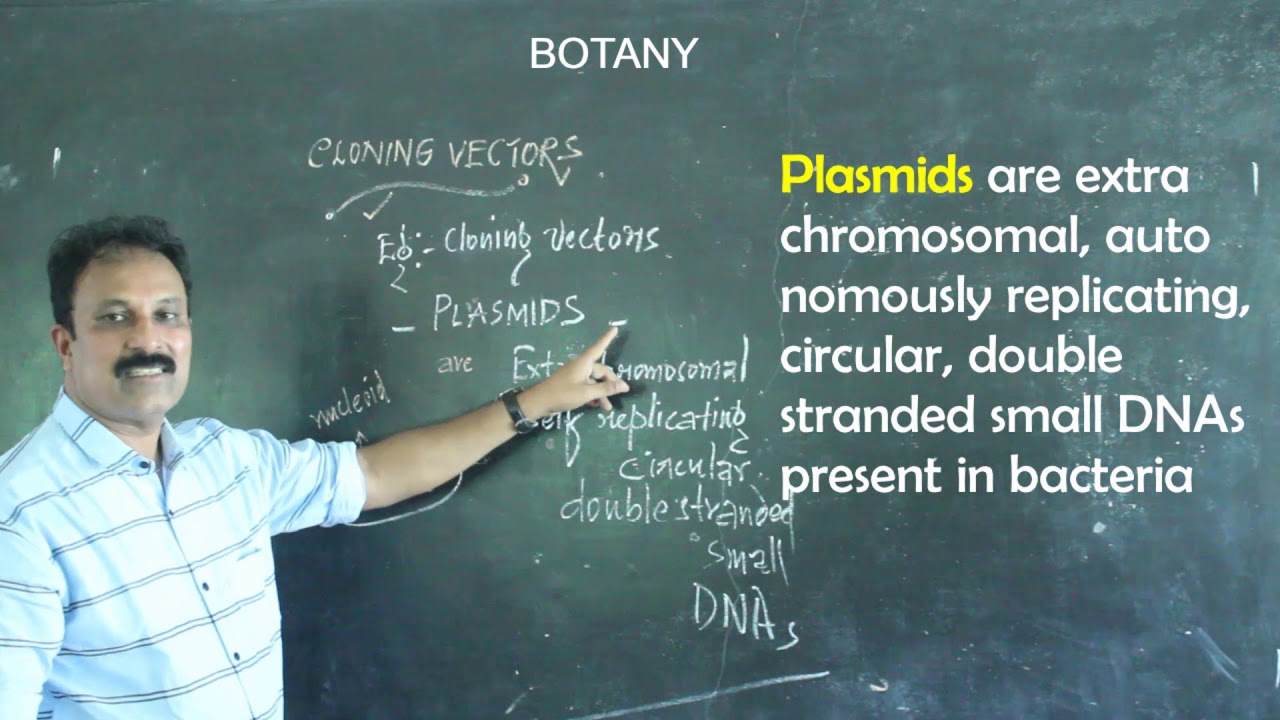 BOTANY
CLONING VECTORS
Eg:- Cloning vectors
- PLASMIDS -
are Extra chromosomal
Self replicating
circular
double stranded
small
DNAs
nucleoid
Plasmids are extra
chromosomal, auto
nomously replicating,
circular, double
stranded small DNAs
present in bacteria